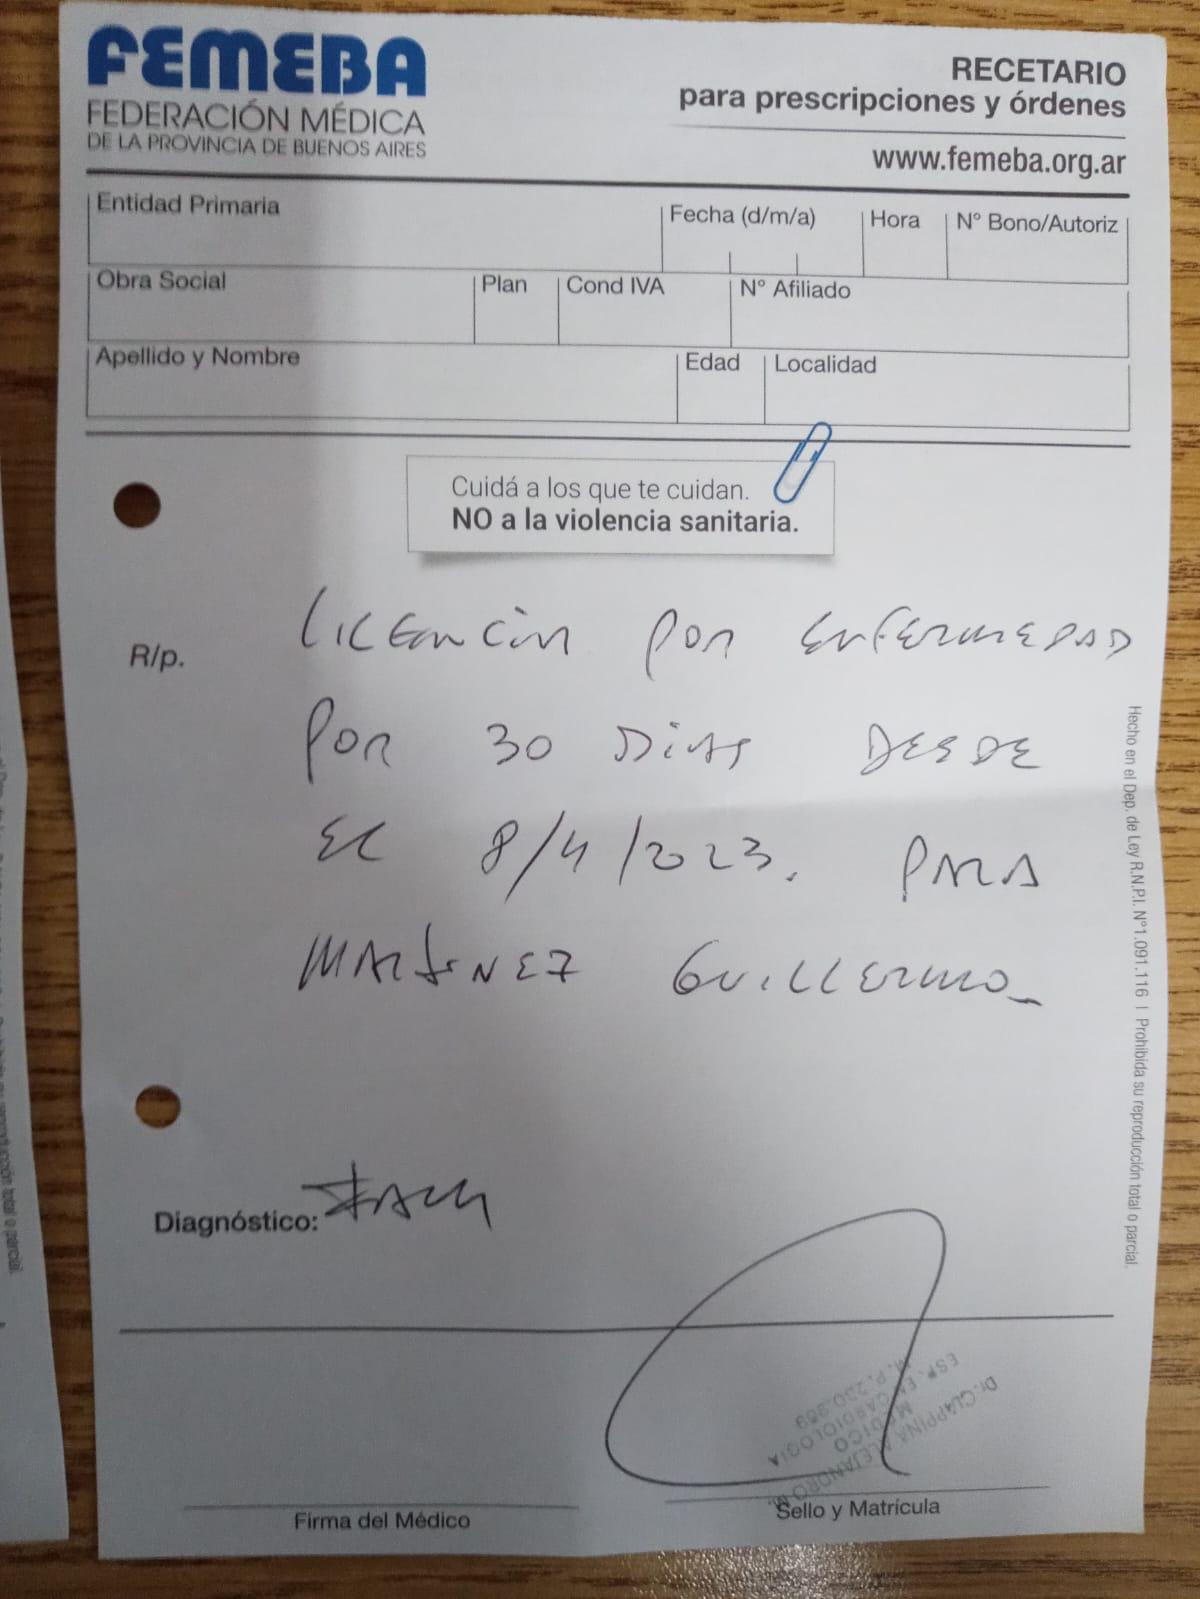 FEMEBA
FEDERACIÓN MÉDICA
DE LA PROVINCIA DE BUENOS AIRES
RECETARIO
para prescripciones y órdenes
www.femeba.org.ar
Entidad Primaria
Fecha (d/m/a)
Hora
N° Bono/Autoriz
Obra Social
Plan
Cond IVA
N° Afiliado
Apellido y Nombre
Edad
Localidad
Cuidá a los que te cuidan.
NO a la violencia sanitaria.
R/p.
LICENCIA POR ENFERMEDAD
POR 30 DIAS DESDE
EL 8/4/2023. PARA
MARTINEZ GUILLERMO
Diagnóstico:
Dr. CIAPPINA ALEJANDRO M.
MEDICO
ESP. EN CARDIOLOGIA
M.P. 230.989
Firma del Médico
Sello y Matrícula
Hecho en el Dep. de Ley R.N.P.I. N°1.091.116 | Prohibida su reproducción total o parcial.